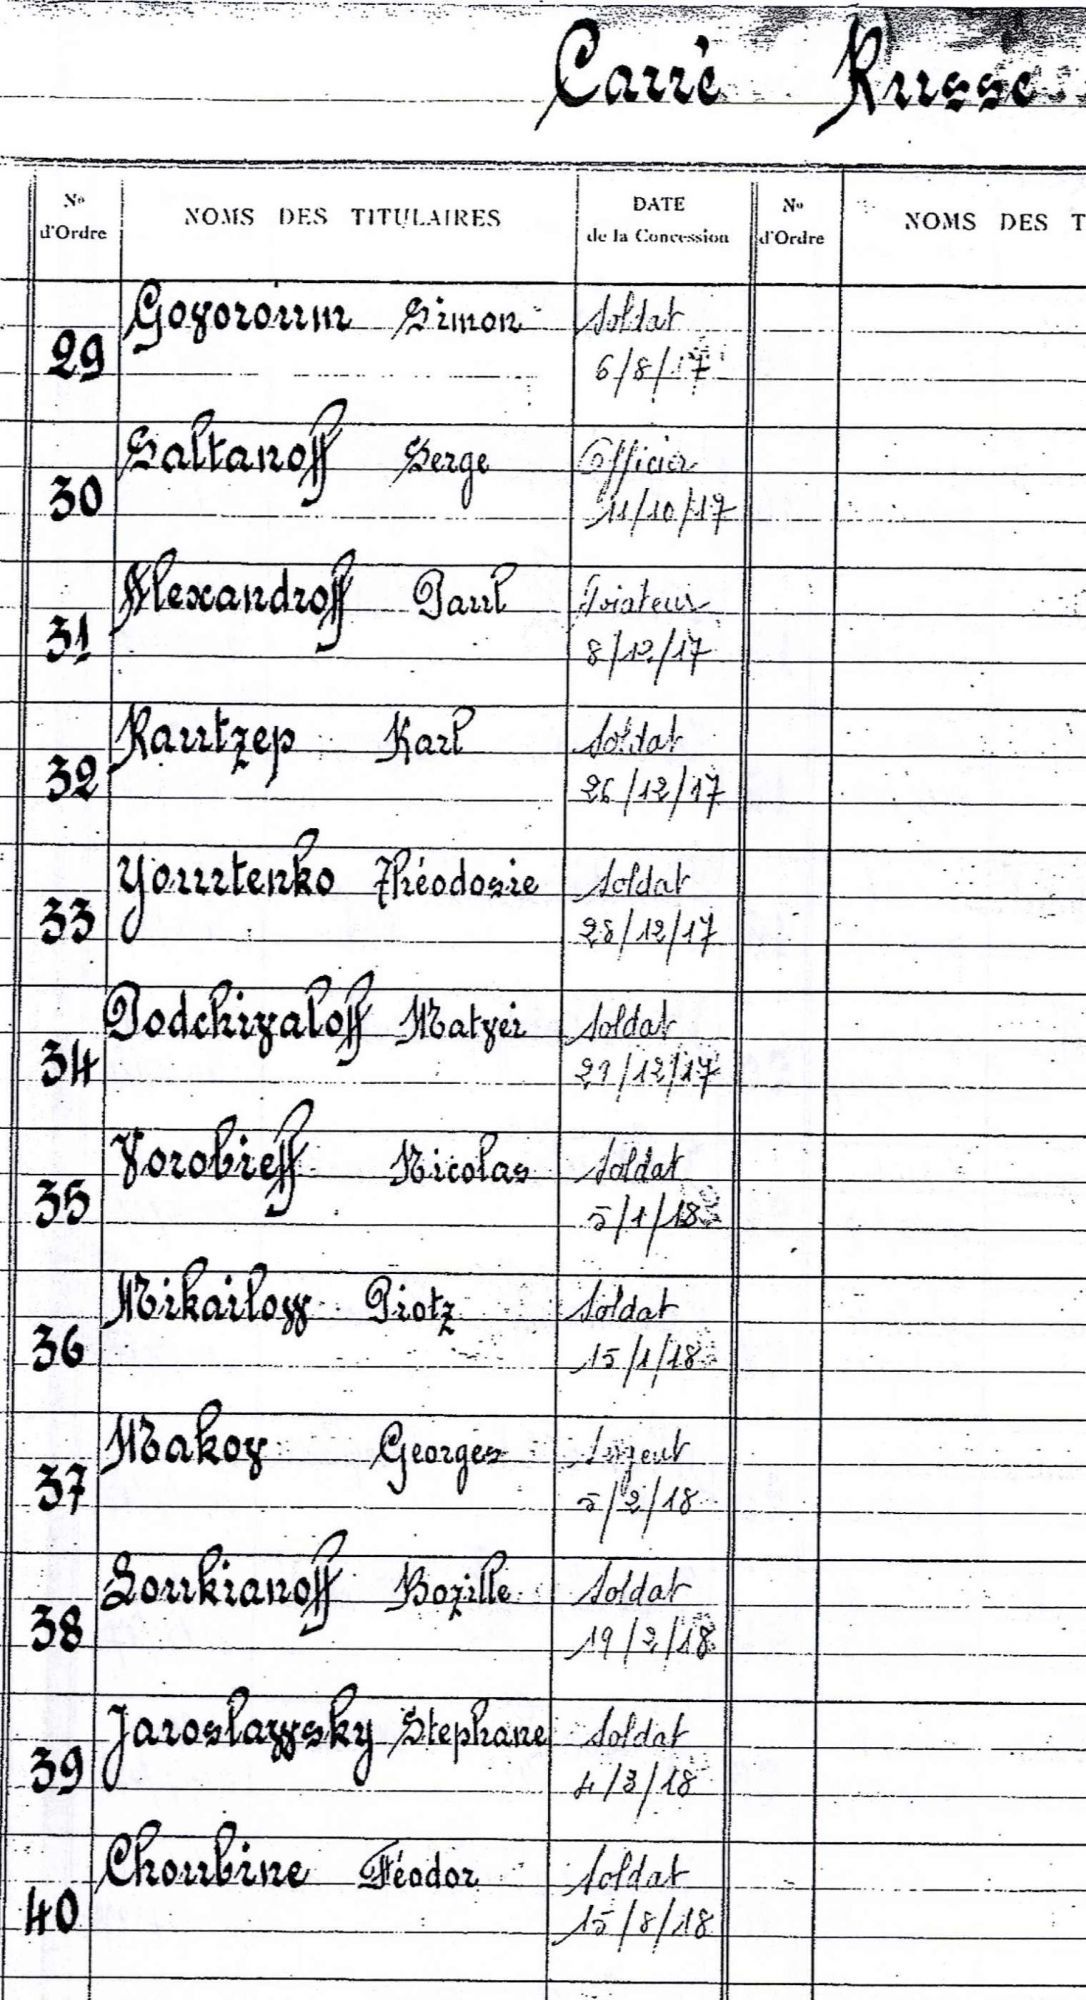 Carré Russe
No d'Ordre
NOMS DES TITULAIRES
DATE de la Concession
No d'Ordre
NOMS DES T
29 Govoroum Simon Soldat
6/8/17
30 Saltanoff Serge Officier
11/10/17
31 Alexandroff Paul Aviateur
8/12/17
32 Kautzep Karl Soldat
26/12/17
33 Yourtenko Théodosie Soldat
28/12/17
34 Podchivaloff Matvei Soldat
29/12/17
35 Vorobieff Nicolas Soldat
5/1/18
36 Mikailovv Piotz Soldat
15/1/18
37 Makov Georges Sergent
5/2/18
38 Loukianoff Bozille Soldat
19/2/18
39 Jaroslavvsky Stephane Soldat
4/3/18
40 Choubine Féodor Soldat
15/8/18